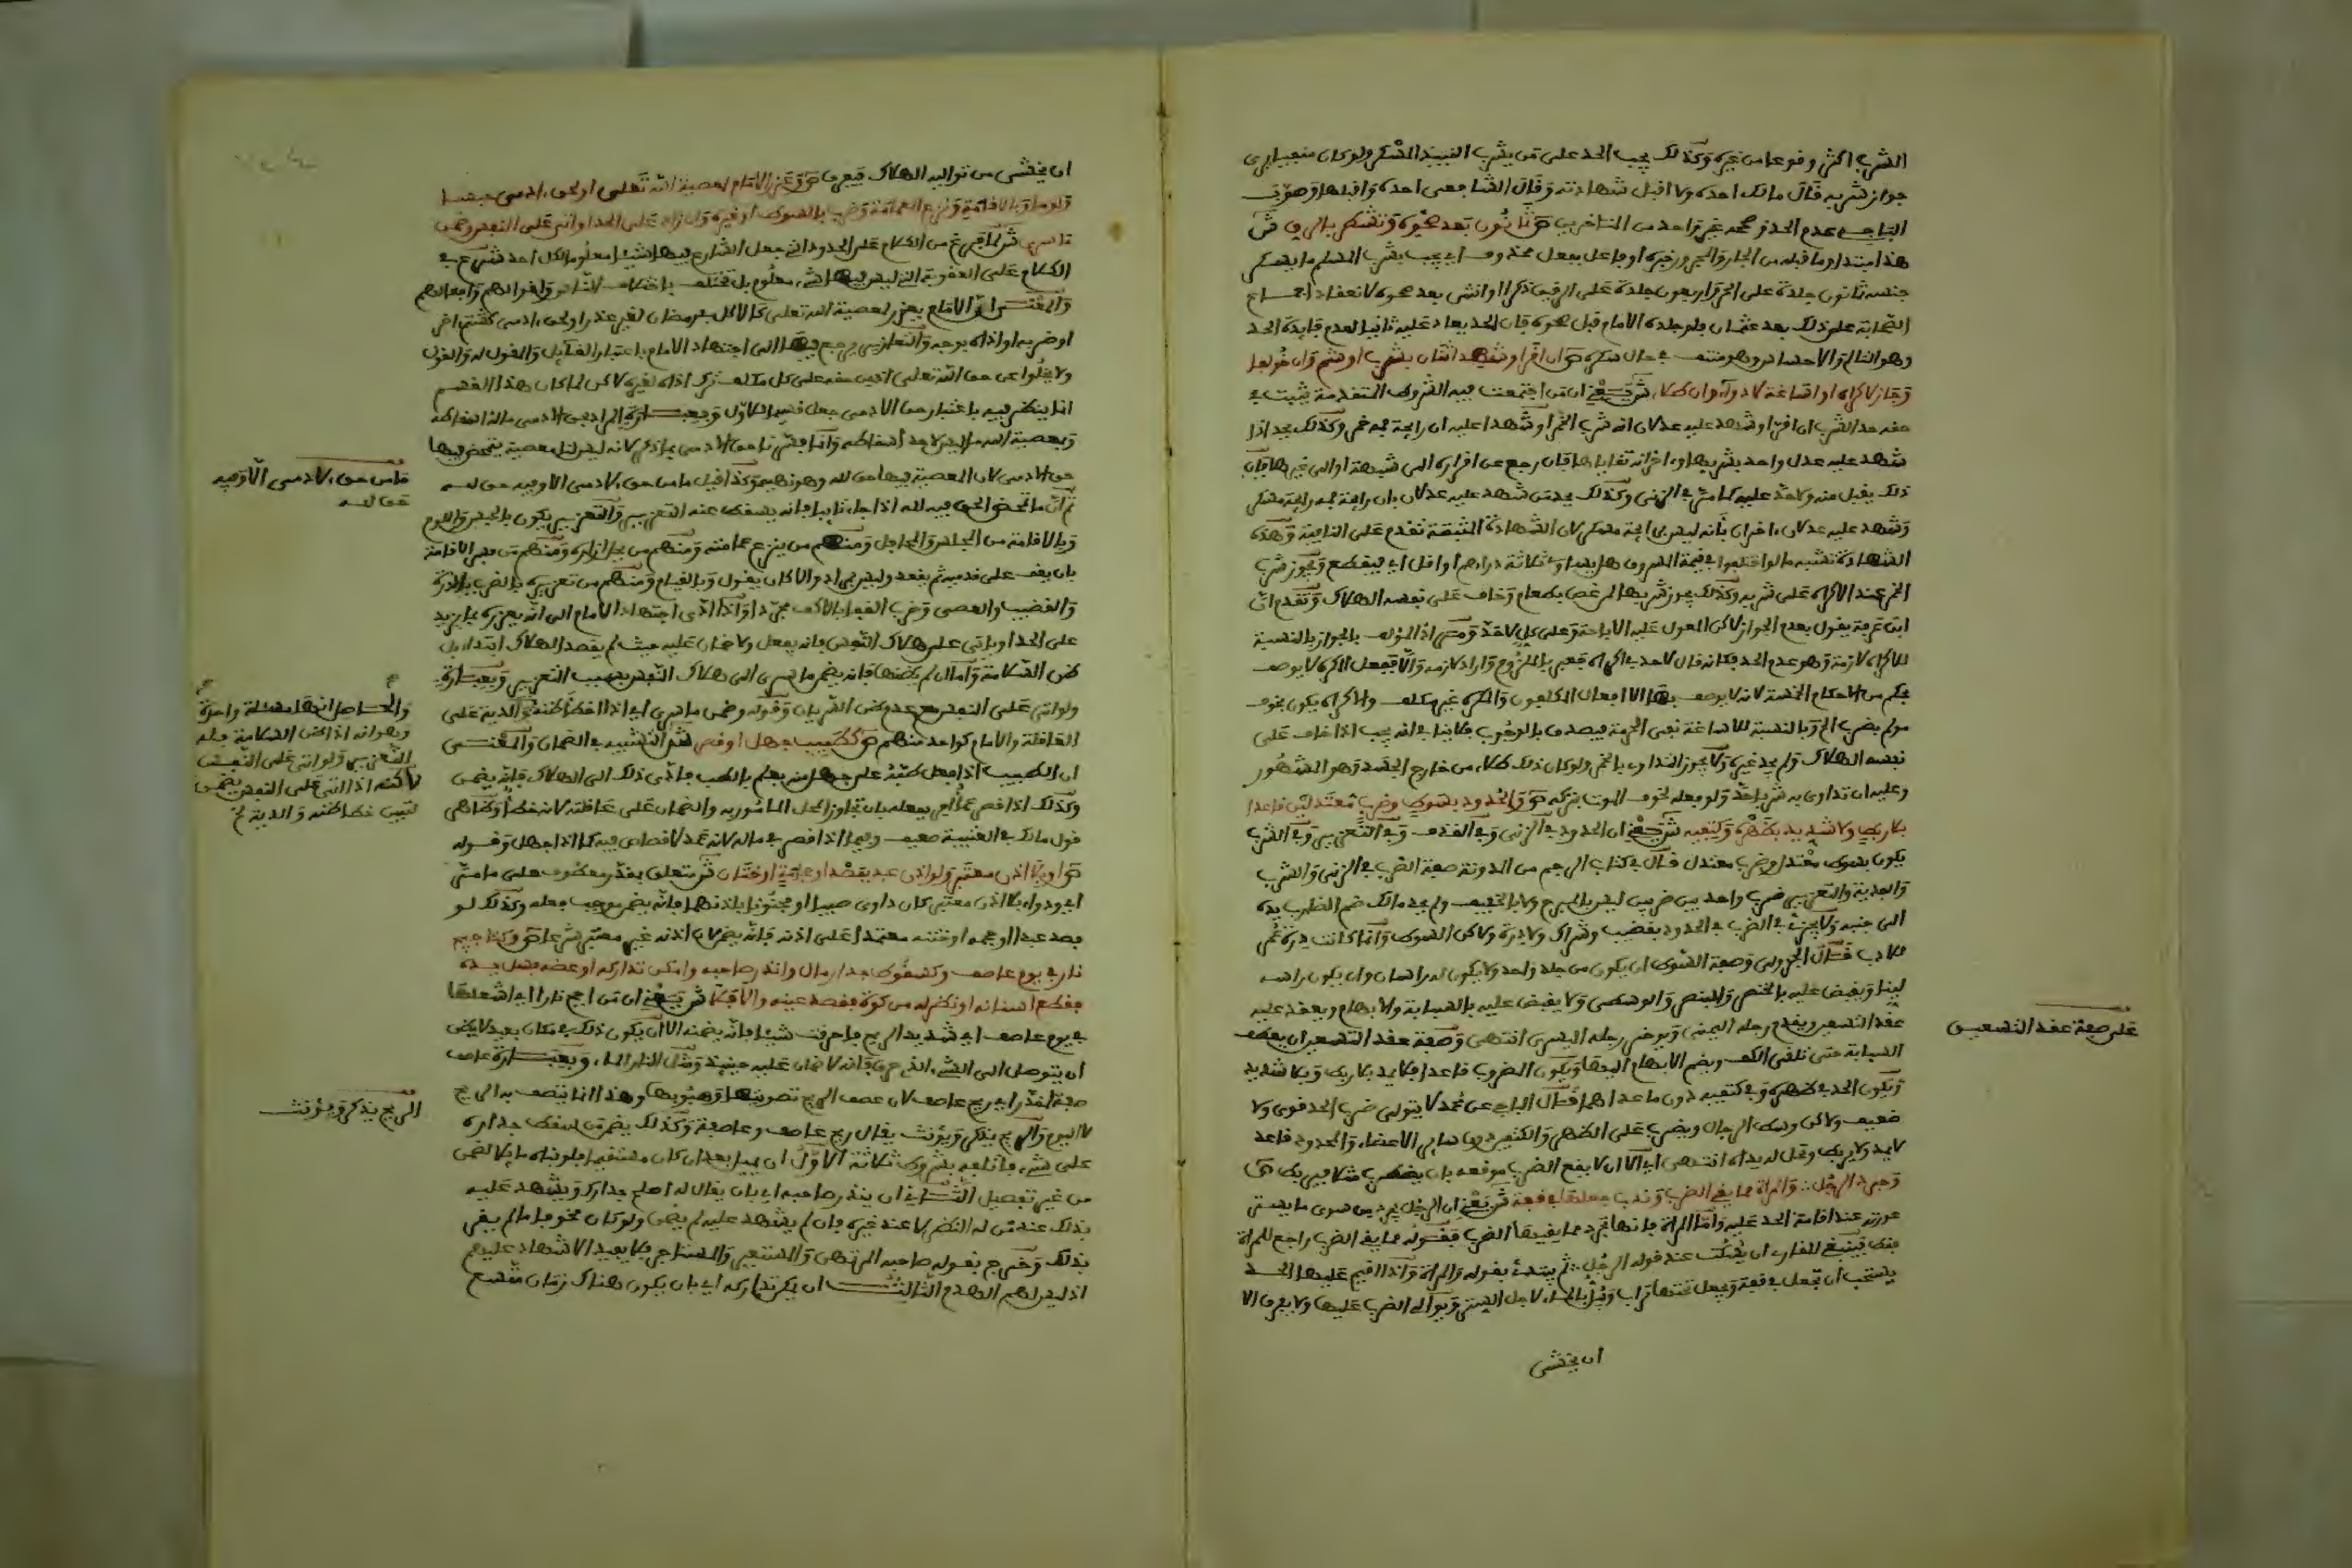 الشرب اكثر وقوعا من غيره وكذلك يجب الحد على من يشرب النبيذ المسكر ولو كان ممن يرى
جواز شربه قال مالك احده ولا اقبل شهادته وقال الشافعي احده واقبلها وصوب
الباجي عدم الحد وصححه غير واحد من المتاخرين ص ثمانون بعد صحوه وتشطر بالرق ش
هذا مبتدا وما قبله من الجار والمجرور خبره او فاعل بفعل محذوف اي يجب بشرب المسلم ما يسكر
جنسه ثمانون جلدة على الحر واربعون جلدة على الرقيق ذكرا او انثى بعد صحوه لانعقاد اجماع
الصحابة على ذلك بعد عثمان فلو جلده الامام قبل صحوه فان الحد يعاد عليه ثانيا لعدم فايدة الحد
وهو التالم والاحساس وهو منتف في حال سكره ص ان اقر او شهد اثنان بشرب او شم وان خولفا
وجاز لاكراه او اساغة لا دواء وان طلاء ش يعني ان من اجتمعت فيه الشروط المتقدمة يثبت في
حقه حد الشرب ان اقر او شهد عليه عدلان انه شرب الخمر او شهدا عليه ان رايحة فمه خمر وكذلك يحد اذا
شهد عليه عدل واحد بشربها واخر انه تقاياها فان رجع عن اقراره الى شبهة او الى غيرها فان
ذلك يقبل منه ولا حد عليه كما مر في الزنى وكذلك يحد من شهد عليه عدلان بان رايحة فمه رايحة مسكر
وشهد عليه عدلان اخران بانه ليس برايحة مسكر لان الشهادة المثبتة تقدم على النافية وهذه
الشهادة تشبه ما لو اختلفوا في قيمة المسروق هل يساوي ثلاثة دراهم او اقل اي فيقطع ويجوز شرب
الخمر عند الاكراه على شربه وكذلك يجوز شربها لمن غص بطعام وخاف على نفسه الهلاك وتقدم ان
ابن عرفة يقول بعدم الجواز لاكن المعول عليه الاباحة وعلى كل لا حد ومعنى اذا المولف بالجواز بالنسبة
للاكراه لازمه وهو عدم الحد فكانه قال لا حد به اكراه فعبر بالملزوم واراد لازمه والا ففعل المكره لا يوصف
بحكم من الاحكام الخمسة لانه لا يوصف بها الا افعال المكلفين والمكره غير مكلف والاكراه يكون بخوف
مولم بضرب الخ وبالنسبة للاساغة نفى الحرمة فيصدق بالوجوب فلا ينافي انه يجب اذا خاف على
نفسه الهلاك ولم يجد غيره ولا يجوز التداوي بالخمر ولو كان ذلك طلاء من خارج الجسد وهو المشهور
وعليه ان تداوى به شربا حد ولو فعله لخوف الموت بتركه ص والحدود بسوط وضرب معتدلين قاعدا
بلا ربط ولا شديد بظهره وكتفيه ش يعني ان الحدود في الزنى وفي القذف وفي التعزير وفي الشرب
يكون بسوط معتدل وضرب معتدل قال في كتاب الرجم من المدونة صفة الضرب في الزنى والشرب
والفدية والتعزير ضرب واحد بين ضربين ليس بالمبرح ولا بالخفيف ولم يحد مالك ضم الضارب يده
الى جنبه ولا يجزئ الضرب في الحدود بقضيب وشراك ولا درة ولاكن السوط وانما كانت درة عمر
للادب قال الجزولي وصفة السوط ان يكون من جلد واحد ولا يكون له راسان وان يكون راسه
لينا ويقبض عليه بالخنصر والبنصر والوسطى ولا يقبض عليه بالسبابة والابهام ويعقد عليه
عقد التسعين ويقدم رجله اليمنى ويوخر رجله اليسرى انتهى وصفة عقد التسعين ان يعطف
السبابة حتى تلقى الكف ويضم الابهام اليها ويكون المضروب قاعدا فلا يمد بلا ربط وبلا شديد
ويكون الحد في ظهره وفي كتفيه دون ما عداهما قال الباجي عن محمد لا يتولى ضرب الحد قوي ولا
ضعيف ولاكن وسط الرجال ويضرب على الظهر والكتفين دون ساير الاعضاء والمحدود قاعد
لا يمد ولا يربط وتحل له يداه انتهى اي الا ان لا يقع الضرب موقعه بان يضطرب مثلا فيربط ص
وجرد الرجل والمراة مما يقي الضرب وندب جعلها في قفة ش يعني ان الرجل يجرد من سوى ما يستر
عورته عند اقامة الحد عليه واما المراة فانها تجرد مما يقيها الضرب فقوله مما يقي الضرب راجع للمراة
فقط فينبغي للقارئ ان يسكت عند قوله الرجل ثم يبتدئ بقوله والمراة واذا اقيم عليها الحد
يستحب ان تجعل في قفة ويجعل تحتها تراب ويبل بالماء لاجل الستر ويوالى الضرب عليها ولا يفرق الا
ان يخشى
على صفة عقد التسعين
ان يخشى من تواليه الهلاك فيفرق ص وعزر الامام لمعصية الله تعلى او لحق ادمي حبسا
ولوما وبالاقامة ونزع العمامة وضرب بالسوط او غيره وان زاد على الحد او اتى على النفس وضمن
ما سرى ش لما فرغ من الكلام على الحدود التي جعل الشارع فيها شيئا معلوما لكل احد شرع في
الكلام على العقوبة التي ليس فيها شيء معلوم بل تختلف باختلاف الناس واقوالهم وافعالهم
والمعنى ان الامام يعزر لمعصية الله تعلى كالاكل في رمضان لغير عذر او لحق ادمي كشتم اخر
او ضربه او اذاه بوجه والتعازير يرجع فيها الى اجتهاد الامام باعتبار القايل والمقول له والقول
ولا يخلوا عن حق الله تعلى اذ من حقه على كل مكلف ترك اذاه لغيره لاكن لما كان هذا القسم
انما ينظر فيه باعتبار حق الادمي جعل قسيما للاول وبعبارة المراد بحق الادمي ماله اسقاطه
وبمعصية الله ما ليس لاحد اسقاطه وانما فسرنا حق الادمي بما ذكر لانه ليس لنا معصية يتمحض فيها
حق الادمي لان المعصية فيها حق لله وهو نهيه وكذا قيل ما من حق لادمي الا وفيه حق لله
ثم ان ما تمحض الحق فيه لله اذا جاء تايبا فانه يسقط عنه التعزير والتعزير يكون بالحبس واللوم
وبالاقامة من المجلس والمحافل ومنهم من ينزع عمامته ومنهم من يحل ازاره ومنهم من فسر الاقامة
بان يقف على قدميه ثم يقعد وليس بمراد والا كان يقول وبالقيام ومنهم من تعزيره بالضرب بالدرة
والقضيب والعصى وضرب القفا بالاكف مجردا واذا ادى اجتهاد الامام الى انه يعزره بما يزيد
على الحد او ياتي على هلاك النفس فانه يفعل ولا ضمان عليه حيث لم يقصد الهلاك ابتداء بل
ظن السلامة واما ان لم يظنها فانه يضمن ما سرى الى هلاك النفس بسبب التعزير وبعبارة
ولو اتى على النفس مع عدم ظن السريان وقوله وضمن ما سرى اي اذا اخطا ظنه والدية على
العاقلة والامام كواحد منهم ص كطبيب جهل او قصر ش التشبيه في الضمان والمعنى
ان الطبيب اذا فعل طبه على جهل منه بعلم بالطب فادى ذلك الى الهلاك فانه يضمن
وكذلك اذا قصر في فعله بان تجاوز المحل المامور به والضمان على عاقلته لانه خطا وظاهر
قول مالك في العتبية ضعيف وفيما اذا قصر في ماله لانه عمد لا قصاص فيه كما اذا جهل وقوله
ص او بلا اذن معتبر ولو اذن عبد بفصد او حجامة او ختان ش متعلق بمقدر معطوف على ما مر
اي وداواه بلا اذن معتبر كان داوى صبيا او مجنونا باذنهما فانه يضمن موجب فعله وكذلك لو
فصد عبدا او حجمه او ختنه معتمدا على اذنه فانه يضمن لان اذنه غير معتبر شرعا ص وكتاجيج
نار في يوم عاصف وكسقوط جدار مال وانذر صاحبه وامكن تداركه او عضه فسل يده
فقطع اسنانه او نظر له من كوة فقصد عينه والا فلا ش يعني ان من اجج نارا اي اشعلها
في يوم عاصف اي شديد الريح فاحرقت شيئا فانه يضمنه الا ان يكون ذلك في مكان بعيد لا يظن
ان يتوصل الى الشيء الذي حرق فانه لا ضمان عليه حينئذ ومثل النار الماء وبعبارة عاصف
صفة لمقدر اي ريح عاصف لان عصف الريح تصويتها وهبوبها وهذا انما يتصف به الريح
لا اليوم والريح يذكر ويؤنث يقال ريح عاصف وعاصفة وكذلك يضمن من سقط جداره
على شيء فاتلفه بشروط ثلاثة الاول ان يميل بعد ان كان مستقيما فلو بناه مايلا ضمن
من غير تفصيل الثاني ان ينذر صاحبه اي بان يقال له اصلح جدارك ويشهد عليه
بذلك عند من له النظر لا عند غيره فان لم يشهد عليه لم يضمن ولو كان مخوفا ما لم يقر
بذلك وخرج بقوله صاحبه المرتهن والمستعير والمستاجر فلا يفيد الاشهاد عليهم
اذ ليس لهم الهدم الثالث ان يمكن تداركه اي بان يكون هناك زمان متسع
ما من حق لادمي الا وفيه
حق لله
والحاصل انها مسئلة واحدة
وهو انه اذا ظن السلامة جاز له
التعزير ولو اتى على النفس
لاكنه اذا اتى على النفس يضمن
لتبين خطا ظنه والدية الخ
الريح يذكر ويؤنث